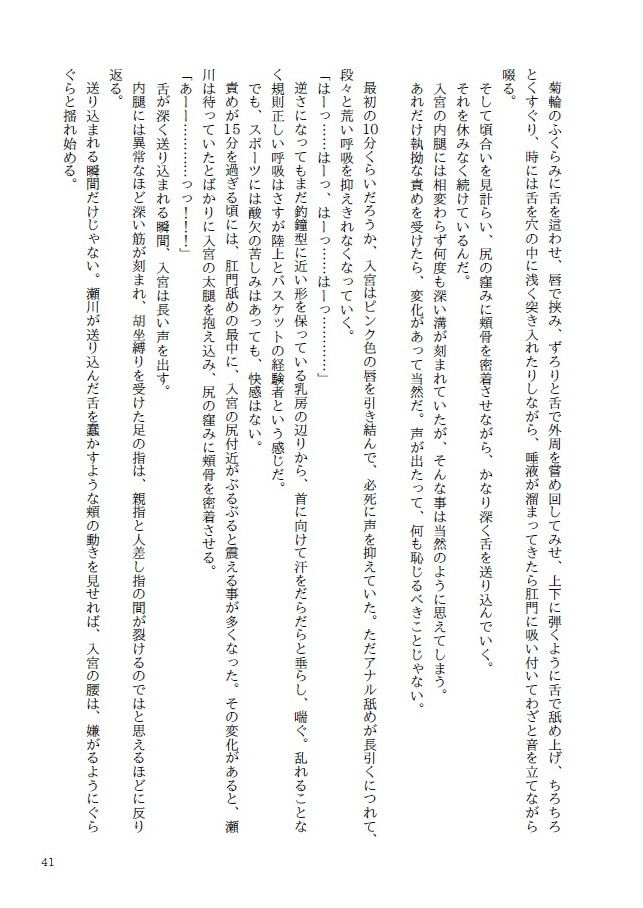 菊輪のふくらみに舌を這わせ、唇で挟み、ずろりと舌で外周を嘗め回してみせ、上下に弾くように舌で舐め上げ、ちろちろ
とくすぐり、時には舌を穴の中に浅く突き入れたりしながら、唾液が溜まってきたら肛門に吸い付いてわざと音を立てながら
啜る。
そして頃合いを見計らい、尻の窪みに頬骨を密着させながら、かなり深く舌を送り込んでいく。
それを休みなく続けているんだ。
入宮の内腿には相変わらず何度も深い溝が刻まれていたが、そんな事は当然のように思えてしまう。
あれだけ執拗な責めを受けたら、変化があって当然だ。声が出たって、何も恥じるべきことじゃない。
最初の10分くらいだろうか、入宮はピンク色の唇を引き結んで、必死に声を抑えていた。ただアナル舐めが長引くにつれて、
段々と荒い呼吸を抑えきれなくなっていく。
「はーっ……はーっ、はーっ……はーっ…………」
逆さになってもまだ釣鐘型に近い形を保っている乳房の辺りから、首に向けて汗をだらだらと垂らし、喘ぐ。乱れることな
く規則正しい呼吸はさすが陸上とバスケットの経験者という感じだ。
でも、スポーツには酸欠の苦しみはあっても、快感はない。
責めが15分を過ぎる頃には、肛門舐めの最中に、入宮の尻付近がぶるぶると震える事が多くなった。その変化があると、瀬
川は待っていたとばかりに入宮の太腿を抱え込み、尻の窪みに頬骨を密着させる。
「あーー…………っっ！！！」
舌が深く送り込まれる瞬間、入宮は長い声を出す。
内腿には異常なほど深い筋が刻まれ、胡坐縛りを受けた足の指は、親指と人差し指の間が裂けるのではと思えるほどに反り
返る。
送り込まれる瞬間だけじゃない。瀬川が送り込んだ舌を蠢かすような頬の動きを見せれば、入宮の腰は、嫌がるようにぐら
ぐらと揺れ始める。
41